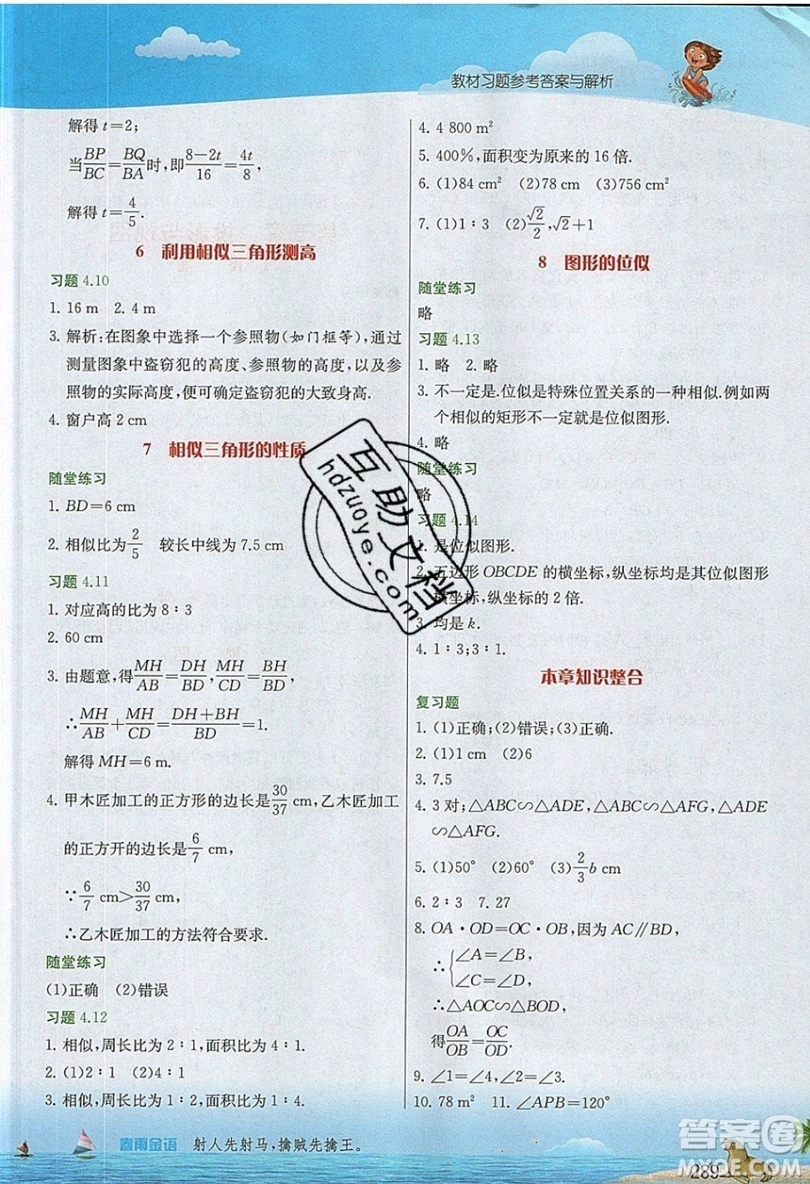 教材习题参考答案与解析
解得t=2;
当BP/BC=BQ/BA时,即(8-2t)/16=4t/8,
解得t=4/5.
6 利用相似三角形测高
习题 4.10
1. 16 m 2. 4 m
3. 解析:在图象中选择一个参照物(如门框等),通过
测量图象中盗窃犯的高度、参照物的高度,以及参
照物的实际高度,便可确定盗窃犯的大致身高.
4. 窗户高2 cm
7 相似三角形的性质
随堂练习
1. BD=6 cm
2. 相似比为2/5 较长中线为7.5 cm
习题 4.11
1. 对应高的比为8∶3
2. 60 cm
3. 由题意,得MH/AB=DH/BD,MH/CD=BH/BD,
∴MH/AB+MH/CD=(DH+BH)/BD=1.
解得MH=6 m.
4. 甲木匠加工的正方形的边长是30/37 cm,乙木匠加工
的正方开的边长是6/7 cm,
∵6/7 cm>30/37 cm,
∴乙木匠加工的方法符合要求.
随堂练习
(1)正确 (2)错误
习题 4.12
1. 相似,周长比为2∶1,面积比为4∶1.
2. (1)2∶3 (2)2∶3
3. 相似,周长比为1∶2,面积比为1∶4.
4. 4 800 m²
5. 400%,面积变为原来的16倍.
6. (1)84 cm² (2)78 cm (3)756 cm²
7. (1)1∶3 (2)√2/2,√2+1
8 图形的位似
随堂练习
略
习题 4.13
1. 略 2. 略
3. 不一定是.位似是特殊位置关系的一种相似.例如两
个相似的矩形不一定就是位似图形.
4. 略
随堂练习
略
习题 4.14
1. 是位似图形.
2. 五边形OBCDE的横坐标,纵坐标均是其位似图形
横坐标,纵坐标的2倍.
3. 均是k.
4. 1∶3;3∶1.
本章知识整合
复习题
1. (1)正确;(2)错误;(3)正确.
2. (1)1 cm (2)6
3. 7.5
4. 3对;△ABC∽△ADE,△ABC∽△AFG,
△ADE∽△AFG.
5. (1)50° (2)60° (3)2/3 b cm
6. 2∶3 7. 27
8. OA·OD=OC·OB,因为AC∥BD,
∴{∠A=∠B,
∠C=∠D,
∴△AOC∽△BOD,
得OA/OB=OC/OD.
9. ∠1=∠2=∠3=∠4
10. 78 m² 11. ∠APB=120°
互助文档
hdzuoye.com
春雨金语 射人先射马,擒贼先擒王。
289
答案圈
MXQE.COM